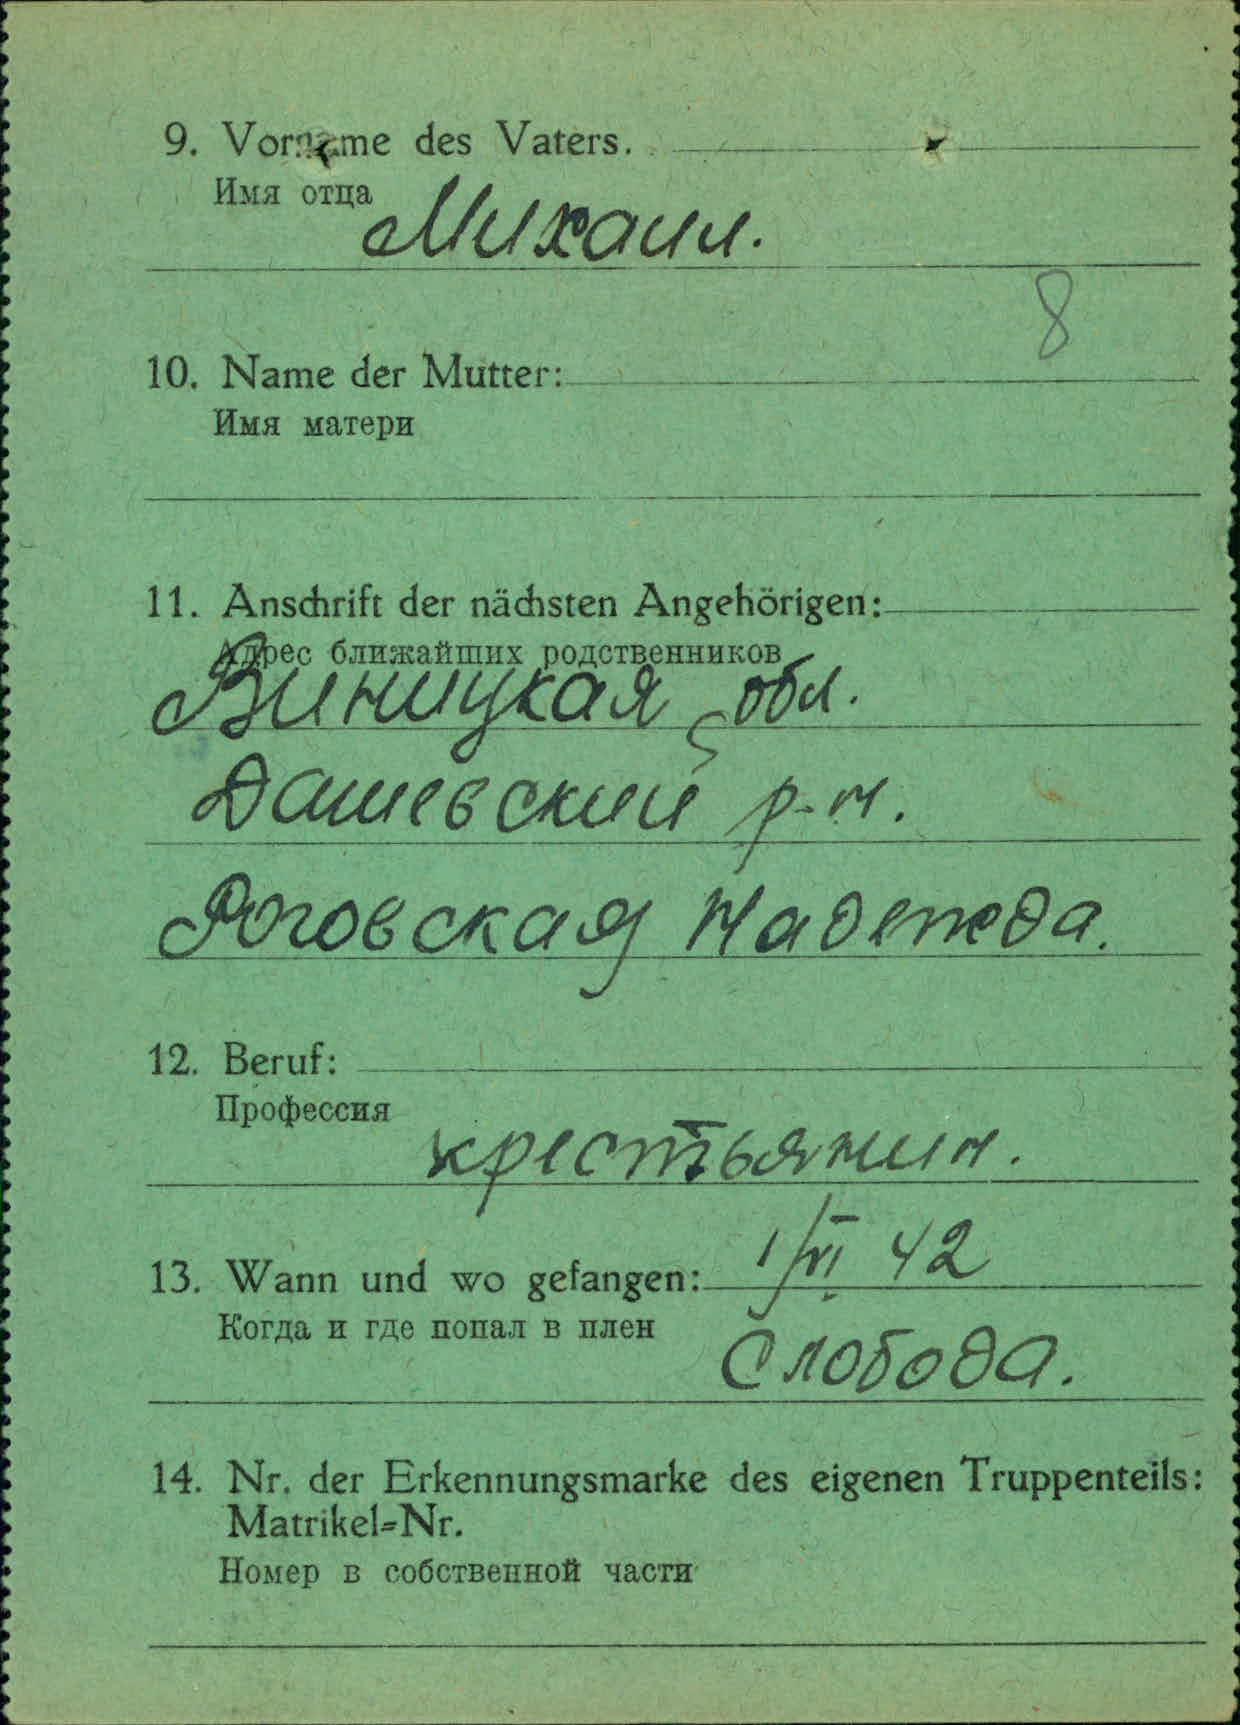 9. Vorname des Vaters.
Имя отца
Михаил.
8
10. Name der Mutter:
Имя матери
11. Anschrift der nächsten Angehörigen:
Адрес ближайших родственников
Виницкая обл.
Дашевский р-н.
Роговская Надежда.
12. Beruf:
Профессия
крестьянин.
13. Wann und wo gefangen: 1/VI 42
Когда и где попал в плен
Слобода.
14. Nr. der Erkennungsmarke des eigenen Truppenteils:
Matrikel-Nr.
Номер в собственной части